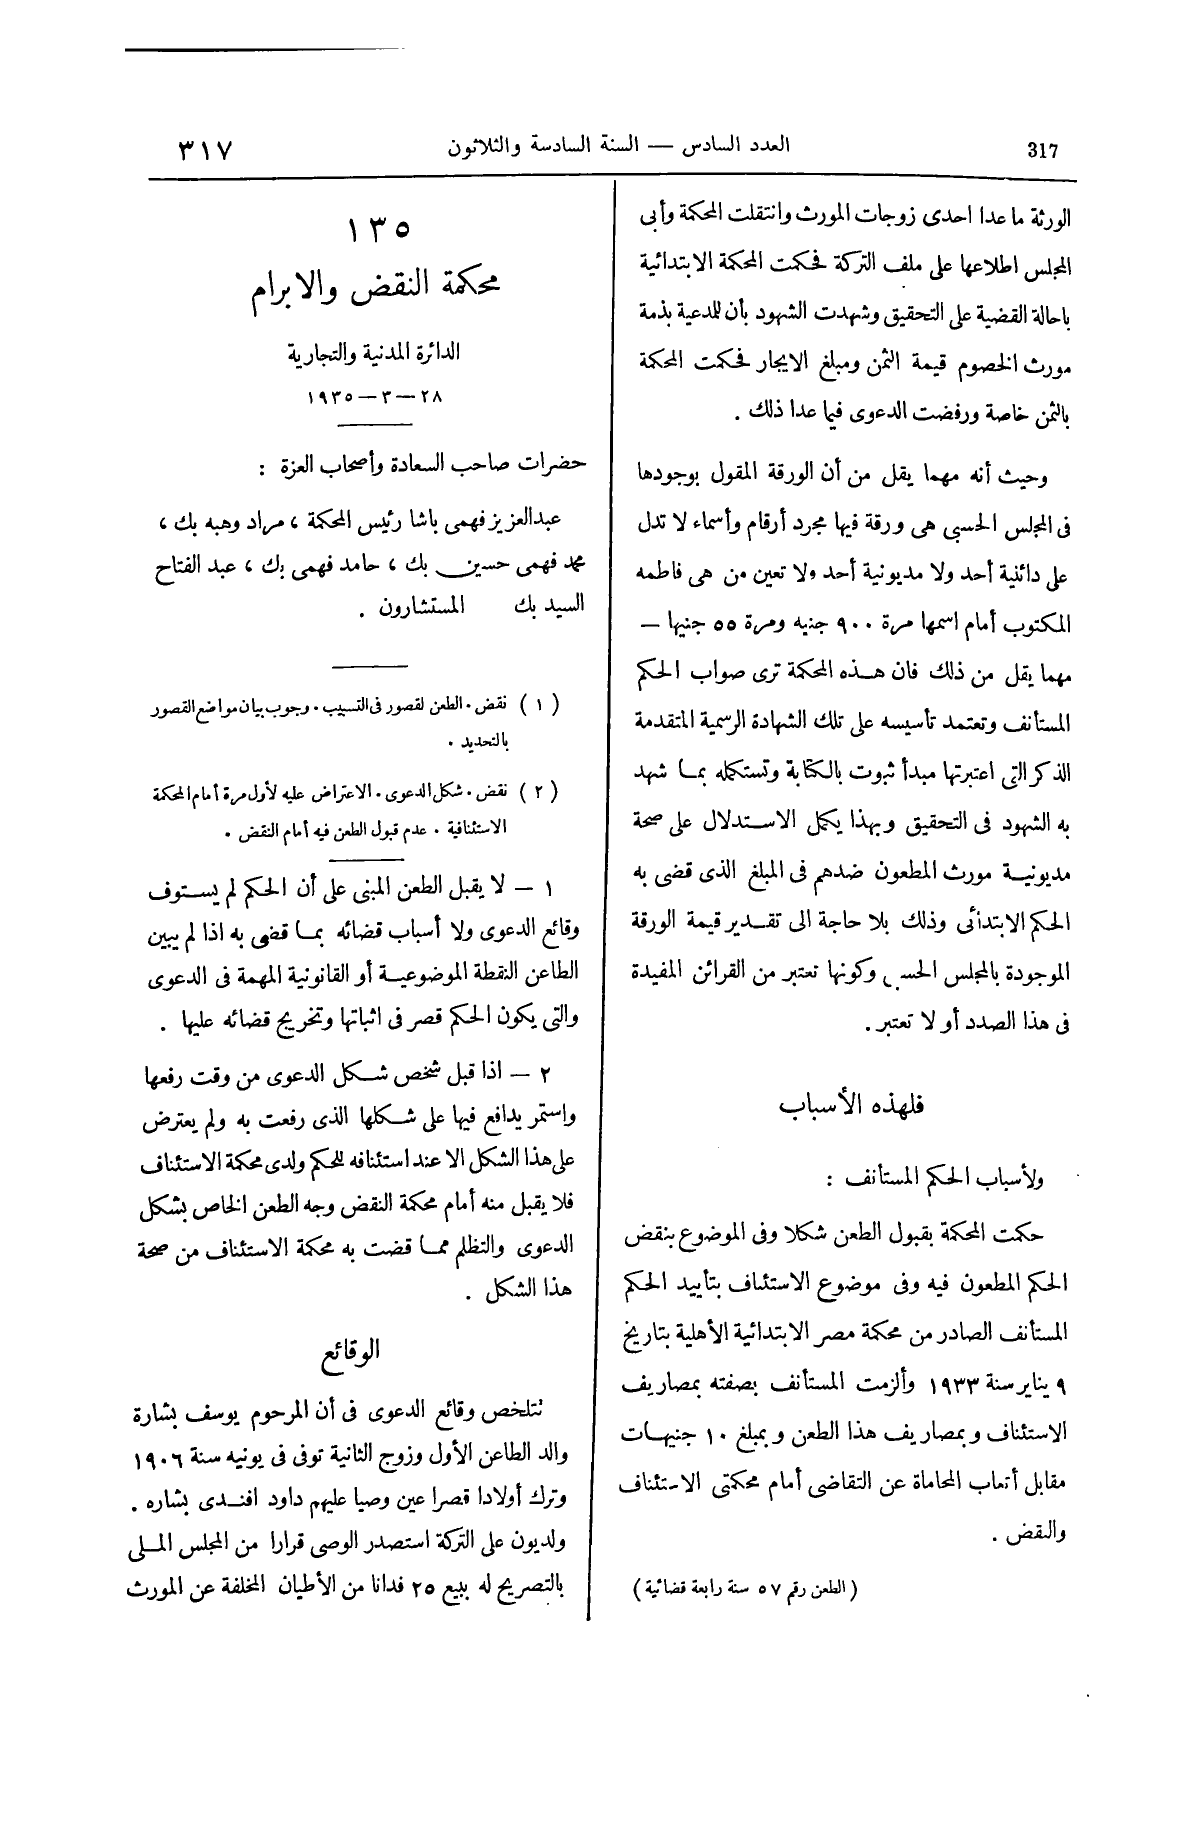 317
العدد السادس — السنة السادسة والثلاثون
٣١٧
الورثة ما عدا احدى زوجات المورث وانتقلت المحكمة وأبى
المجلس اطلاعها على ملف التركة فحكمت المحكمة الابتدائية
باحالة القضية على التحقيق وشهدت الشهود بأن للمدعية بذمة
مورث الخصوم قيمة الثمن ومبلغ الايجار فحكمت المحكمة
بالثمن خاصة ورفضت الدعوى فيما عدا ذلك .
وحيث أنه مهما يقل من أن الورقة المقول بوجودها
فى المجلس الحسبى هى ورقة فيها مجرد أرقام وأسماء لا تدل
على دائنية أحد ولا مديونية أحد ولا تعين من هى فاطمه
المكتوب أمام اسمها مرة ٩٠٠ جنيه ومرة ٥٥ جنيها —
مهما يقل من ذلك فان هذه المحكمة ترى صواب الحكم
المستأنف وتعتمد تأسيسه على تلك الشهادة الرسمية المتقدمة
الذكر التى اعتبرتها مبدأ ثبوت بالكتابة وتستكمله بما شهد
به الشهود فى التحقيق وبهذا يكمل الاستدلال على صحة
مديونية مورث المطعون ضدهم فى المبلغ الذى قضى به
الحكم الابتدائى وذلك بلا حاجة الى تقدير قيمة الورقة
الموجودة بالمجلس الحسبى وكونها تعتبر من القرائن المفيدة
فى هذا الصدد أو لا تعتبر .
فلهذه الأسباب
ولأسباب الحكم المستأنف :
حكمت المحكمة بقبول الطعن شكلا وفى الموضوع بنقض
الحكم المطعون فيه وفى موضوع الاستئناف بتأييد الحكم
المستأنف الصادر من محكمة مصر الابتدائية الأهلية بتاريخ
٩ يناير سنة ١٩٣٣ وألزمت المستأنف بصفته بمصاريف
الاستئناف وبمصاريف هذا الطعن وبمبلغ ١٠ جنيهات
مقابل أتعاب المحاماة عن التقاضى أمام محكمتى الاستئناف
والنقض .
( الطعن رقم ٥٧ سنة رابعة قضائية )
١٣٥
محكمة النقض والابرام
الدائرة المدنية والتجارية
٢٨ — ٣ — ١٩٣٥
حضرات صاحب السعادة وأصحاب العزة :
عبد العزيز فهمى باشا رئيس المحكمة ، مراد وهبه بك ،
محمد فهمى حسين بك ، حامد فهمى بك ، عبد الفتاح
السيد بك المستشارون .
( ١ ) نقض . الطعن لقصور فى التسبيب . وجوب بيان مواضع القصور
بالتحديد .
( ٢ ) نقض . شكل الدعوى . الاعتراض عليه لأول مرة أمام المحكمة
الاستئنافية . عدم قبول الطعن فيه أمام النقض .
١ — لا يقبل الطعن المبنى على أن الحكم لم يستوف
وقائع الدعوى ولا أسباب قضائه بما قضى به اذا لم يبين
الطاعن النقطة الموضوعية أو القانونية المهمة فى الدعوى
والتى يكون الحكم قصر فى اثباتها وتخريج قضائه عليها .
٢ — اذا قبل شخص شكل الدعوى من وقت رفعها
واستمر يدافع فيها على شكلها الذى رفعت به ولم يعترض
على هذا الشكل الا عند استئنافه للحكم ولدى محكمة الاستئناف
فلا يقبل منه أمام محكمة النقض وجه الطعن الخاص بشكل
الدعوى والتظلم مما قضت به محكمة الاستئناف من صحة
هذا الشكل .
الوقائع
تتلخص وقائع الدعوى فى أن المرحوم يوسف بشارة
والد الطاعن الأول وزوج الثانية توفى فى يونيه سنة ١٩٠٦
وترك أولادا قصرا عين وصيا عليهم داود افندى بشاره .
ولديون على التركة استصدر الوصى قرارا من المجلس الملى
بالتصريح له ببيع ٢٥ فدانا من الأطيان المخلفة عن المورث